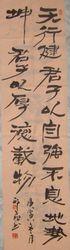 天行健君子以自強不息地勢
坤君子以厚德載物